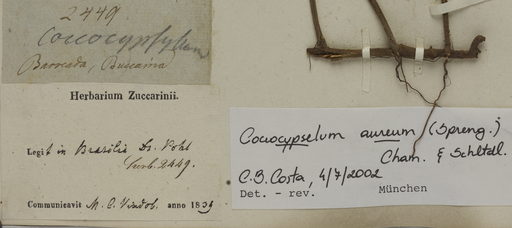 2449
Coccocypsylum
Barrcada, Buccaina
Herbarium Zuccarinii.
Legit in Brasilia Dr. Pohl
herb. 2449.
Communicavit M. C. Vindob. anno 1839
Coccocypselum aureum (Spreng.)
Cham. & Schltdl.
C.B. Costa, 4/7/2002
Det. - rev. München